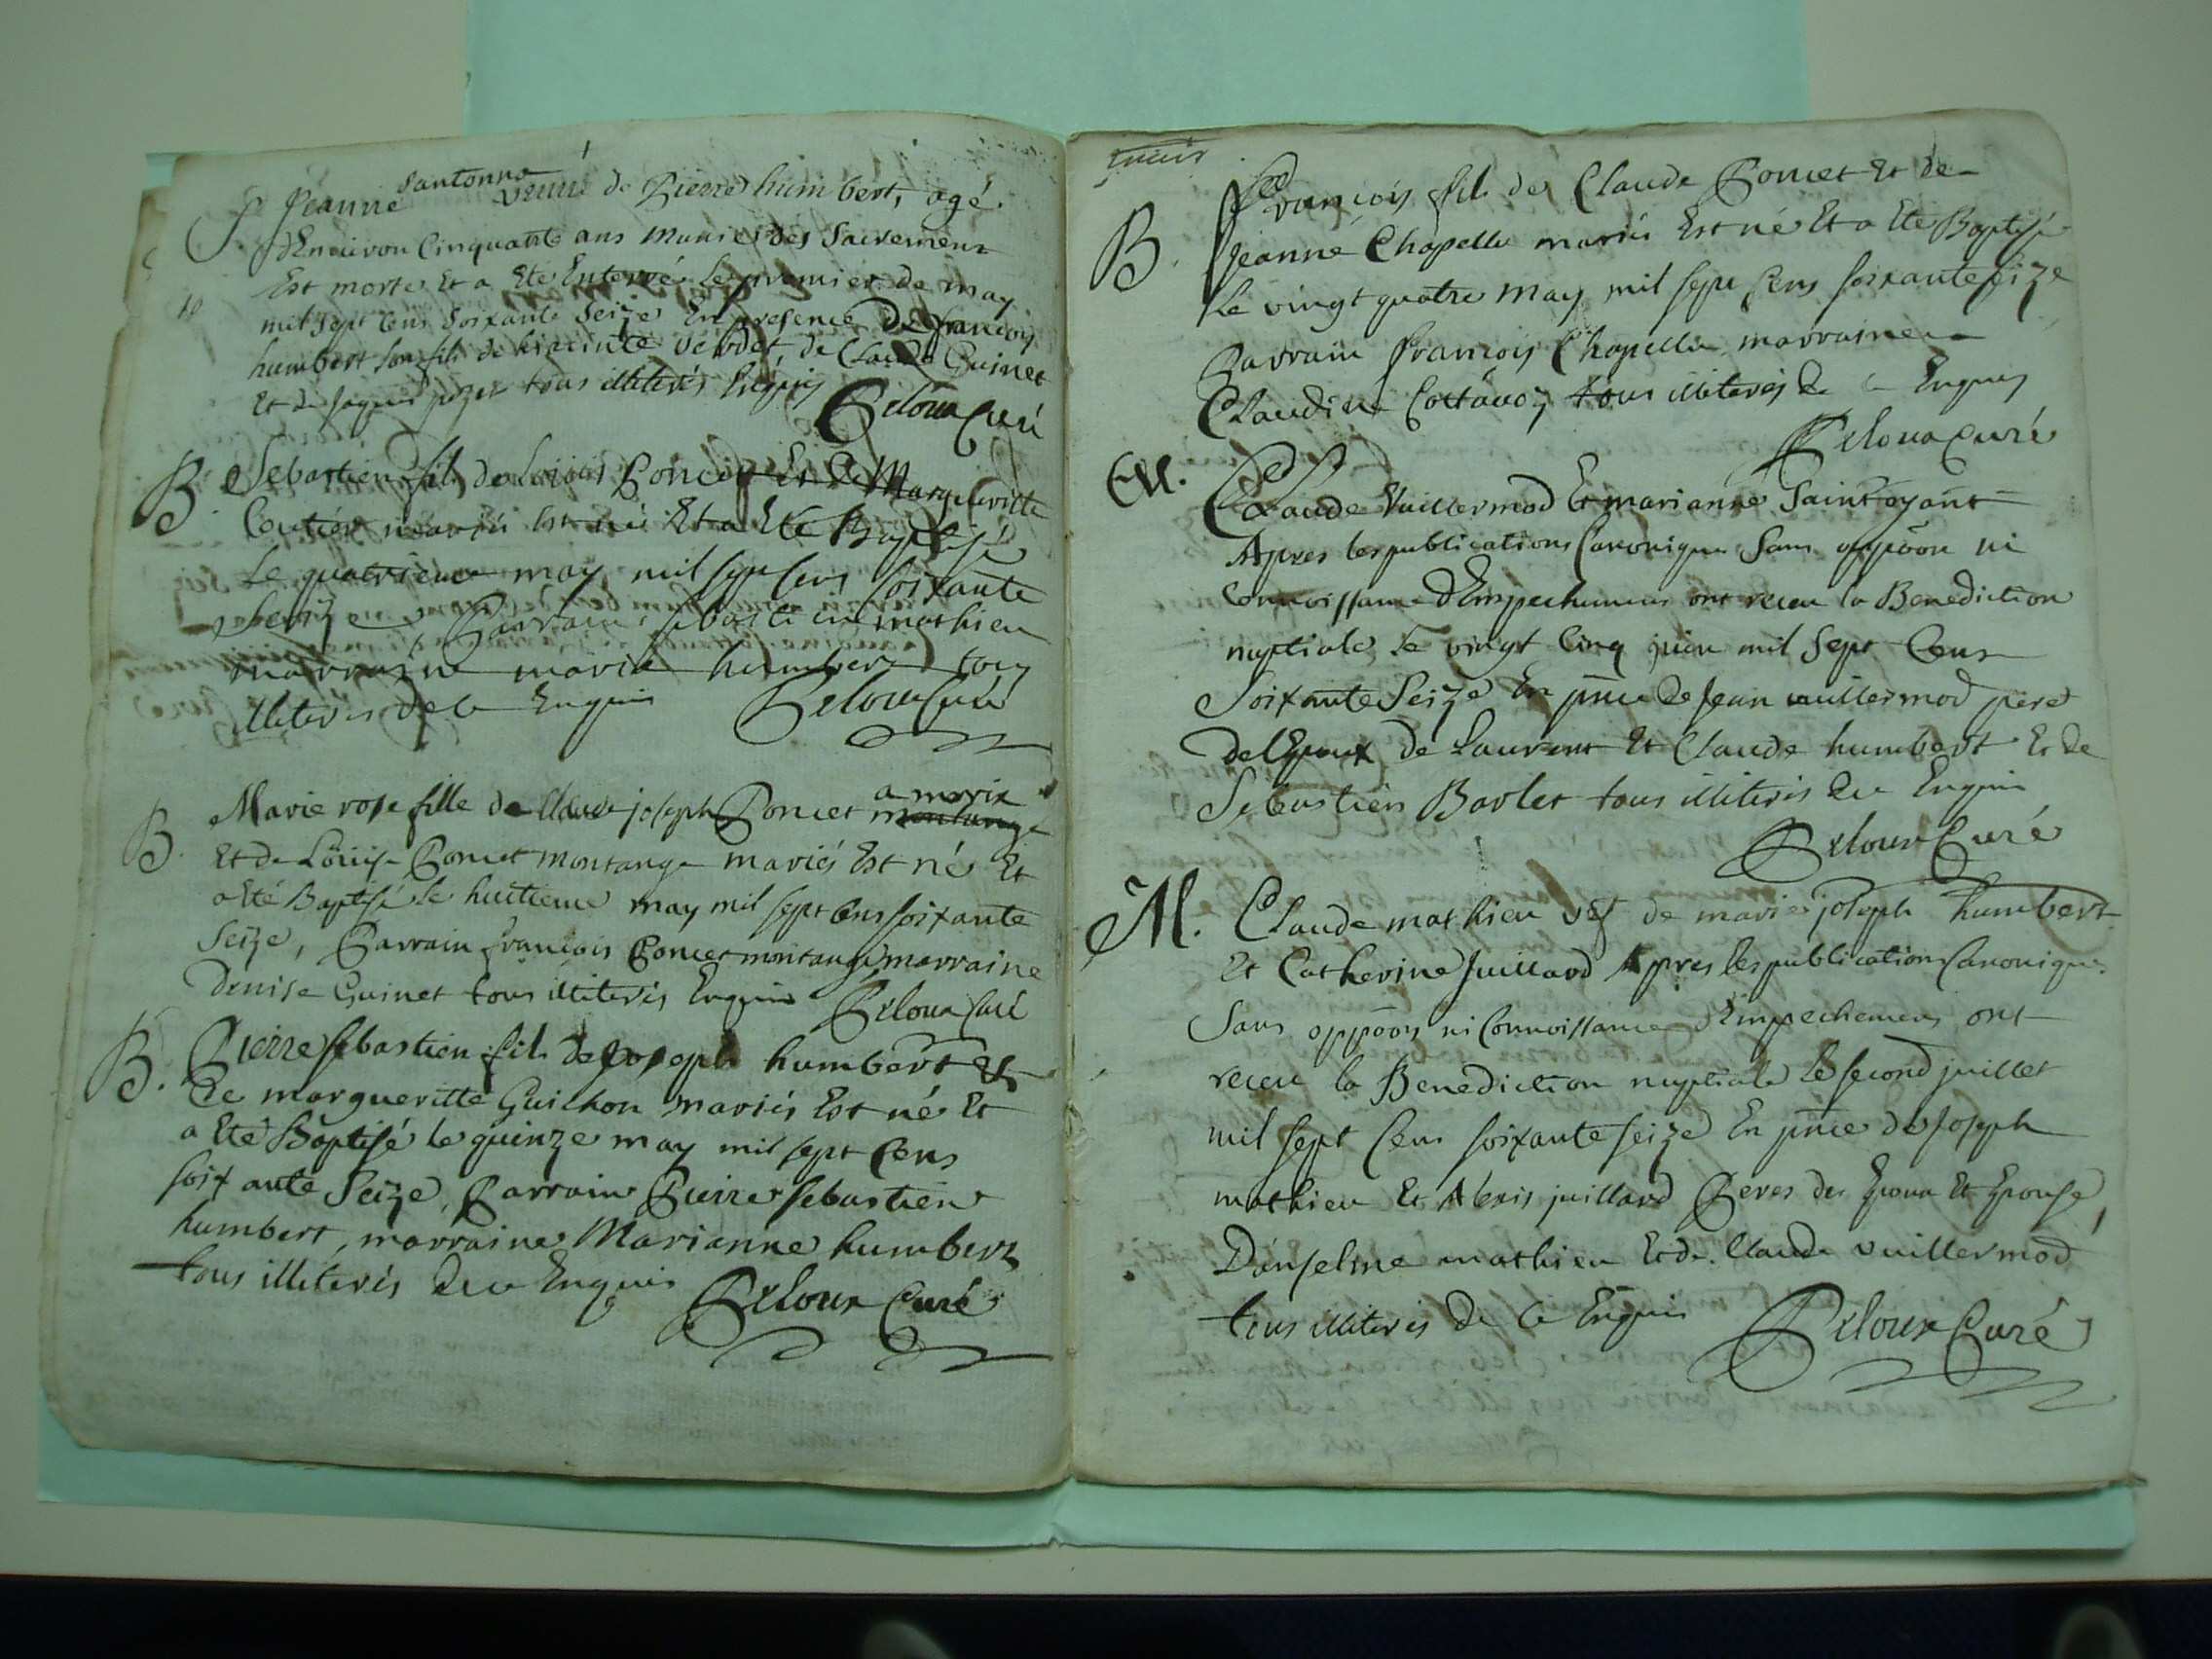 Jeanne Santonna veuve de Pierre humbert, agé
d'Environ Cinquante ans munie des Sacremens
Est morte Et a Eté Enterré Le premier de may
10
mil sept cens soixante Seize En presence De francois
humbert son fils de hiacinte verdet, de Claude Guinet
Et de jaques pozet tous illiterés Enquis
Peloux Curé
B. Sebastien fils de Louis Poncet Et De Margueritte
mariés Est né Et a Eté Baptisé
Le quatrieme may mil sept cens soixante
Seize Parrain Sebastien mathieu
marraine marie humbert tous
illiterés de ce Enquis Peloux Curé
B. Marie rose fille de Claude joseph Poncet a marix
Et de Louise Poncet montange mariés Est né Et
a Eté Baptisé le huitieme may mil sept cens soixante
Seize, Parrain francois Poncet montange marraine
Denise Guinet tous illiterés Enquis Peloux Curé
B. Pierre sebastien fils de joseph humbert &
De margueritte Guichon mariés Est né Et
a Eté Baptisé le quinze may mil sept Cens
soixante Seize, Parrain Pierre sebastien
humbert, marraine Marianne humbert
tous illiterés de ce Enquis Peloux Curé
B. francois fils de Claude Poncet Et de
Jeanne Chapelle mariés Est né Et a Eté Baptisé
Le vingt quatre may mil sept cens soixante seize
Parrain francois Chapelle marraine
Claudine tous illiterés de ce Enquis
Peloux Curé
M. Claude Vuillermod Et marianne Saintoyant
Apres les publications Canoniques Sans oppõon ni
Connoissance d'Empechemens ont receu la Benediction
nuptiale Le vingt Cinq juin mil Sept Cens
Soixante Seize En pnce de Jean vuillermod pere
de l'Epoux de Laurent Et Claude humbert Et de
Sebastien Barlet tous illiterés de ce Enquis
Peloux Curé
M. Claude mathieu vef de marie joseph humbert
Et Catherine Juillard Apres les publications Canoniques
Sans oppõon ni Connoissance d'Empechemens ont
receu la Benediction nuptiale Le second juillet
mil sept Cens soixante seize En pnce de Joseph
mathieu Et Alexis juillard Peres des Epoux Et Epouse,
D'anselme mathieu Et de Claude vuillermod
tous illiterés de ce Enquis Peloux Curé